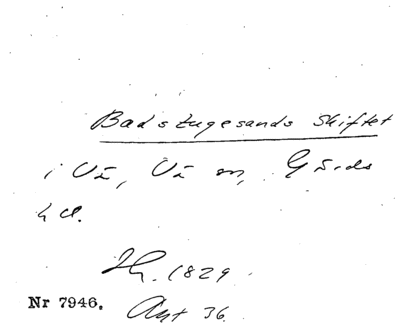 Badstugesands Skiftet
i Vä, Vä sn, Gärds
hd.
Hy. 1829.
Nr 7946. Akt 36.